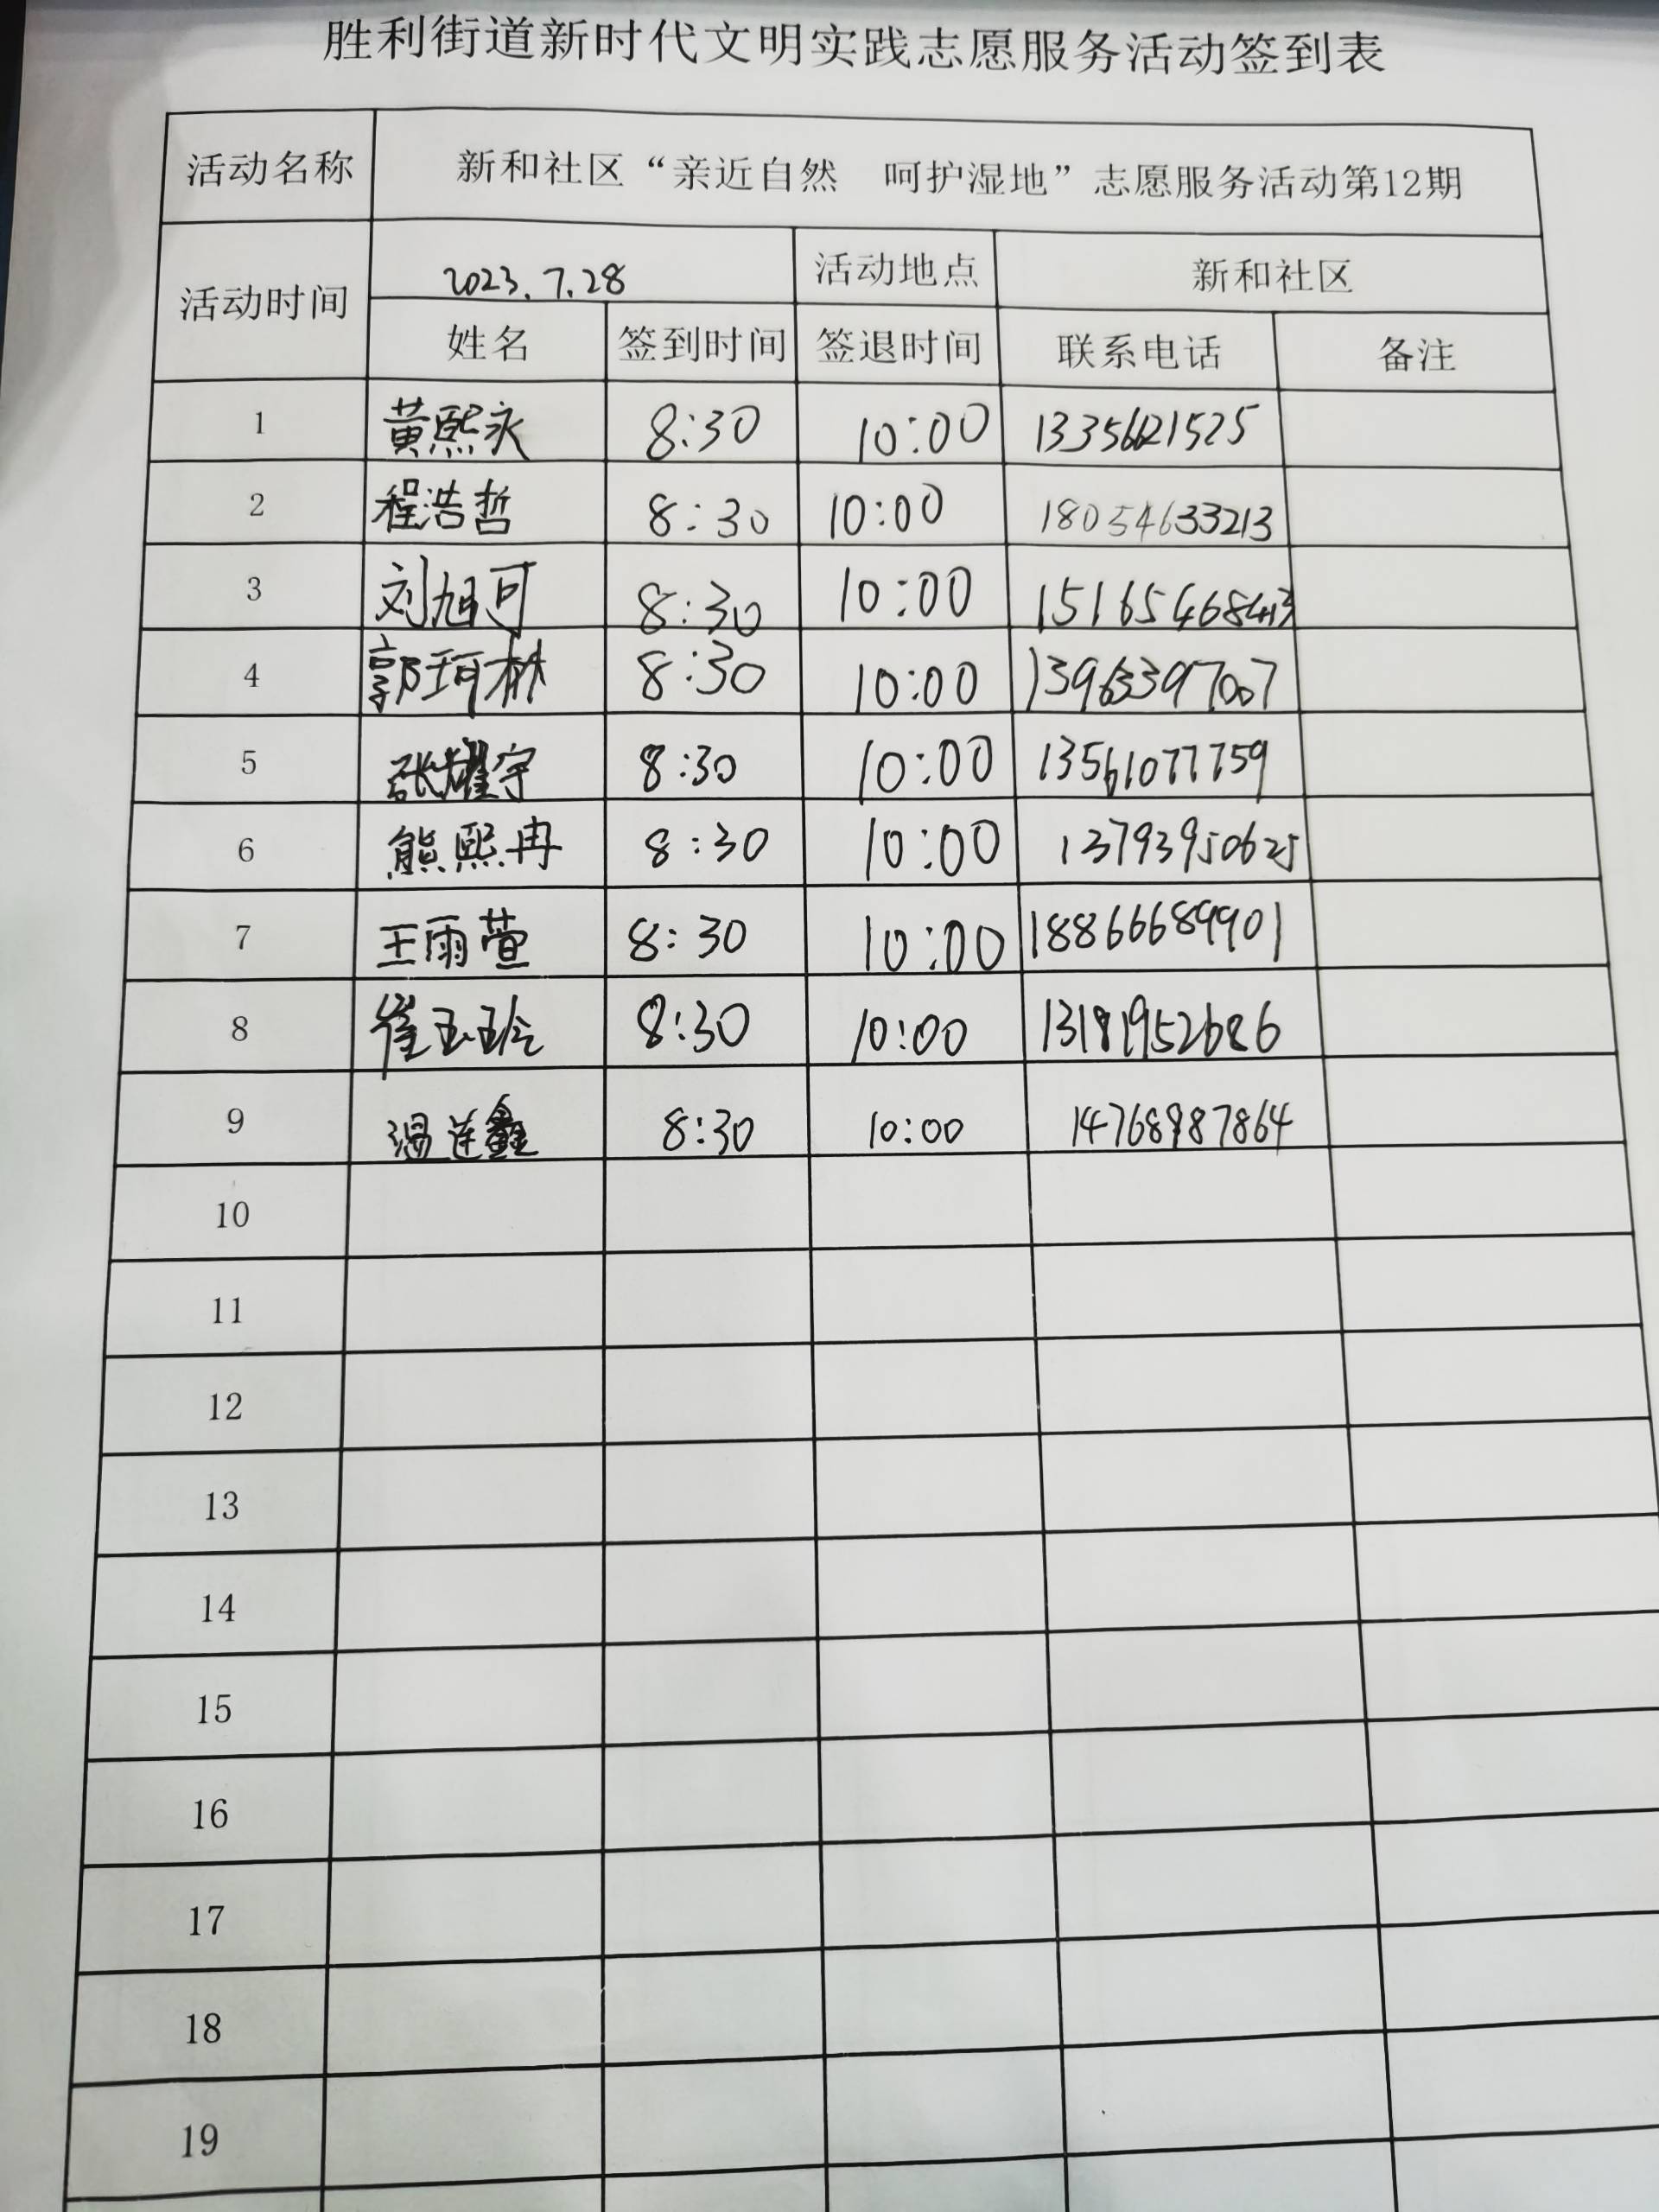 胜利街道新时代文明实践志愿服务活动签到表
活动名称 新和社区“亲近自然 呵护湿地”志愿服务活动第12期
活动时间 2023.7.28 活动地点 新和社区
姓名 签到时间 签退时间 联系电话 备注
1 黄熙永 8:30 10:00
2 程浩哲 8:30 10:00 18054633213
3 刘旭可 8:30 10:00
4 郭珂林 8:30 10:00 13963397007
5 张耀宇 8:30 10:00 13561077759
6 熊熙冉 8:30 10:00 13793950625
7 王雨萱 8:30 10:00 18866689901
8 崔玉玲 8:30 10:00 13181952686
9 温连鑫 8:30 10:00 14768987864
10
11
12
13
14
15
16
17
18
19